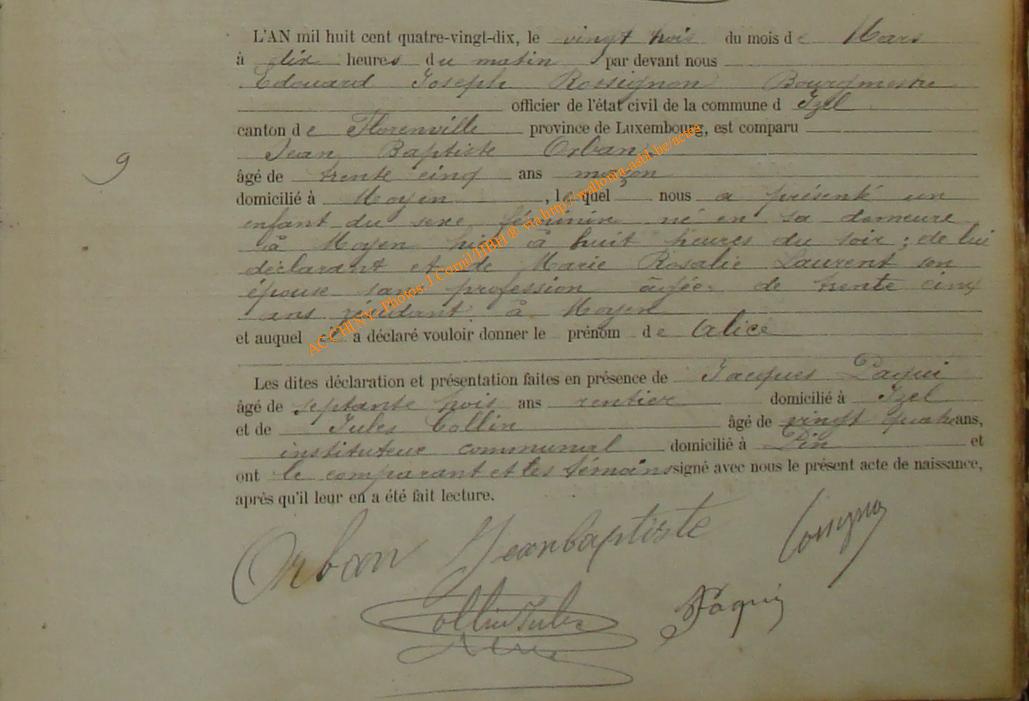 L'AN mil huit cent quatre-vingt-dix, le vingt trois du mois de Mars
à dix heures du matin par devant nous
Edouard Joseph Rossignon Bourgmestre
officier de l'état civil de la commune d Izel
canton de Florenville province de Luxembourg, est comparu
Jean Baptiste Orban
9
âgé de trente cinq ans maçon
domicilié à Moyen, lequel nous a présenté un
enfant du sexe féminin né en sa demeure
à Moyen hier à huit heures du soir; de lui
déclarant et de Marie Rosalie Laurent son
épouse sans profession âgée de trente cinq
ans résidant à Moyen
et auquel il a déclaré vouloir donner le prénom de Alice
Les dites déclaration et présentation faites en présence de Jacques Paqui
âgé de septante trois ans rentier domicilié à Izel
et de Jules Collin âgé de vingt quatre ans,
instituteur communal domicilié à Pin et
ont le comparant et les témoins signé avec nous le présent acte de naissance,
après qu'il leur en a été fait lecture.
Orban Jean baptiste
Rossignon
Collin Jules
J Paqui